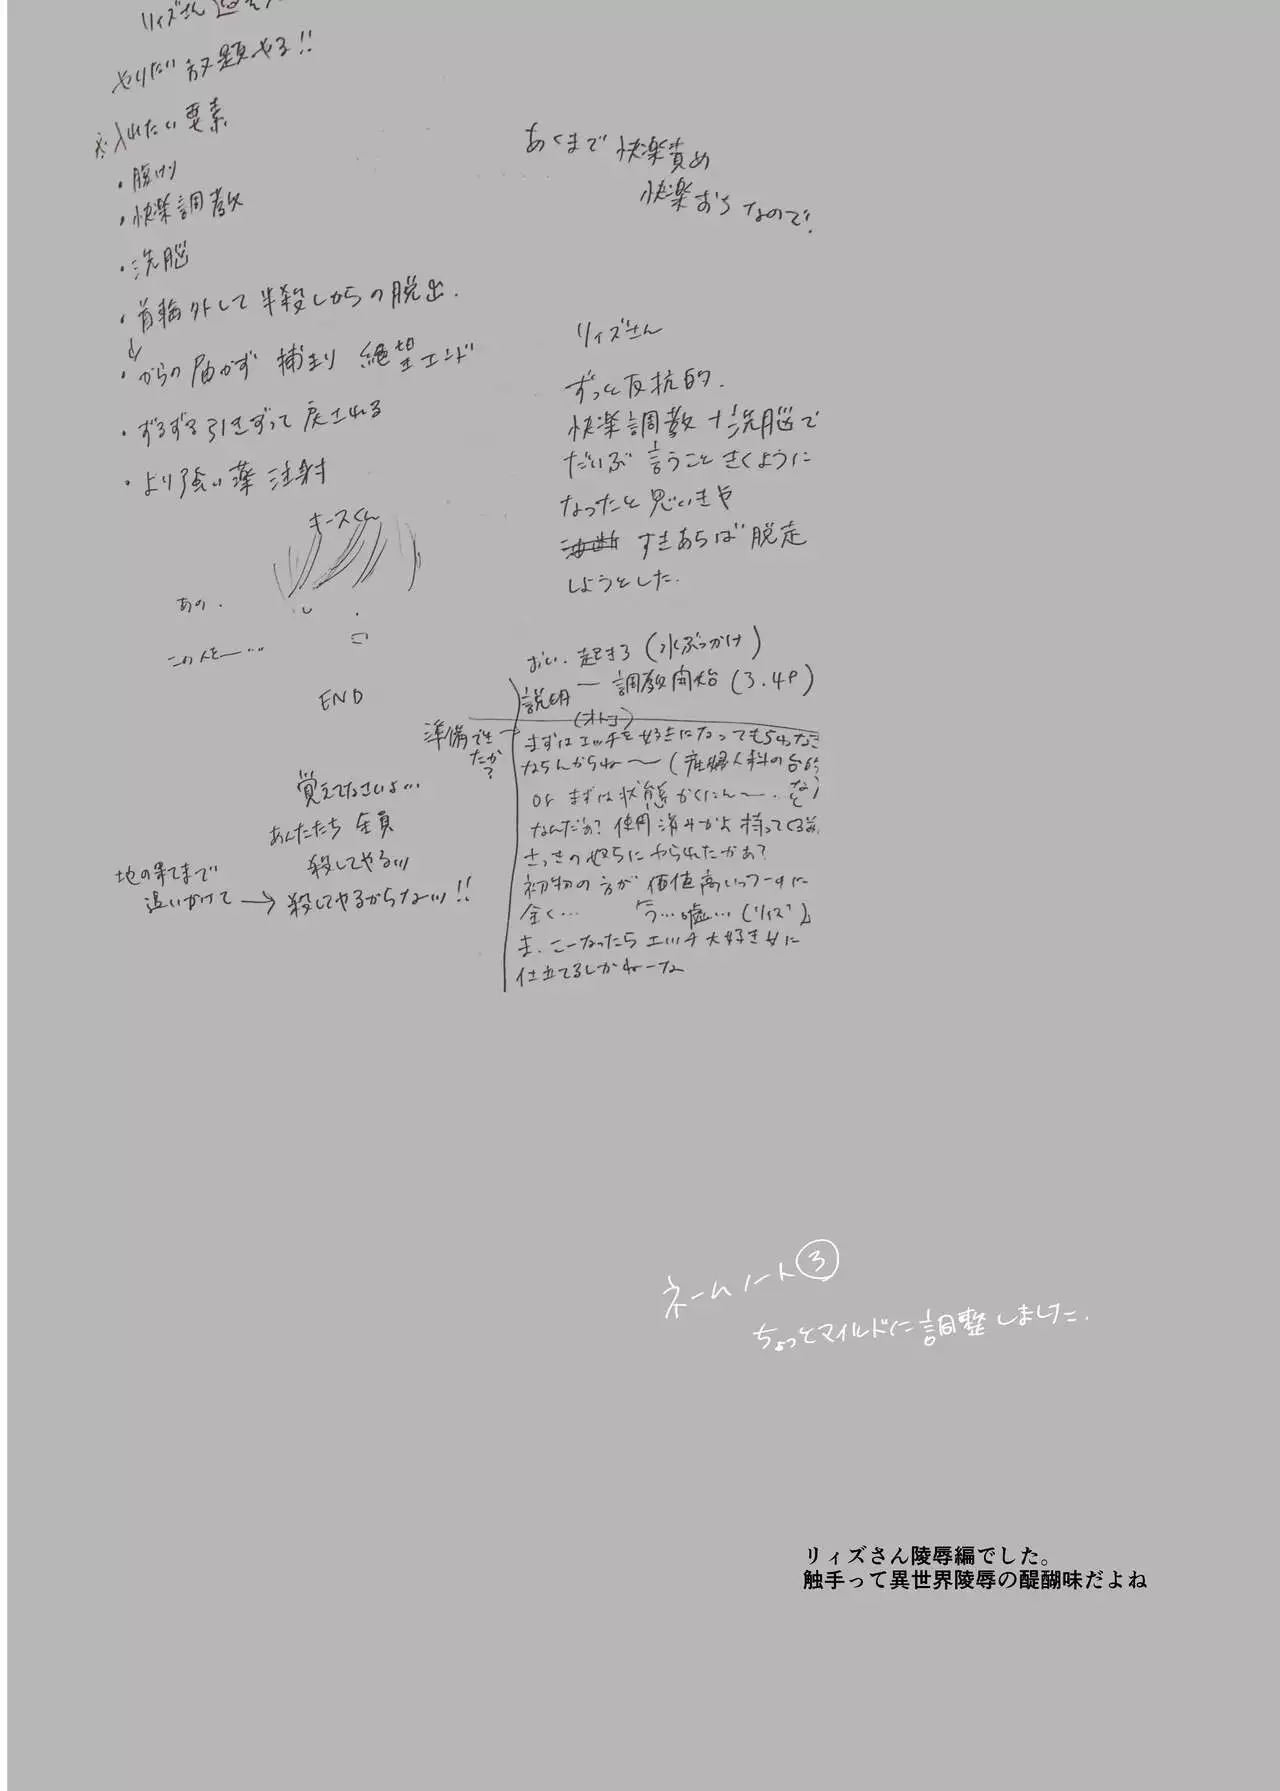 リィズさん
やりたい放題やる!!
※入れたい要素
・腹けり
・快楽調教
・洗脳
・首輪外して半殺しからの脱出.
↓
・からの届かず 捕まり 絶望エンド
・ずるずる引きずって戻される
・より強い薬注射
キースくん
あの.
この人を―…
END
あくまで快楽責め
快楽おちなので!
リィズさん
ずっと反抗的.
快楽調教+洗脳で
だいぶ言うこときくように
なったと思いきや
油断 すきあらば脱走
しようとした.
おい.起きろ(水ぶっかけ)
説明―調教開始(3.4P)
(オトコ)
準備できたか?→
まずはエッチを好きになってもらわなき
ならんからね〜(産婦人科の台
or まずは状態かくにん〜.
なんだぁ?使用済みかよ 持ってくる前
さっきの奴らにやられたかぁ?
初物の方が価値高いっつーのに
全く… 「今…嘘…(リィズ)」
ま.こーなったらエッチ大好き女に
仕立てるしかねーな
覚えてなさいよ…
あんたたち全員
殺してやる
地の果てまで
追いかけて→殺してやるからなッ!!
ネームノート③
ちょっとマイルドに調整しました.
リィズさん陵辱編でした。
触手って異世界陵辱の醍醐味だよね